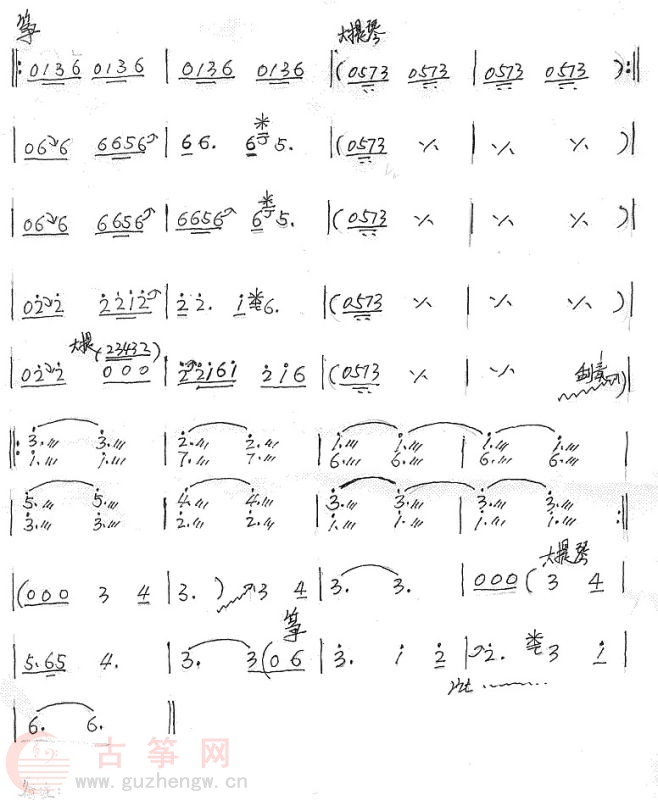 筝 大提琴
‖: 0136 0136 | 0136 0136 | (0573 0573 | 0573 0573 ) :‖
| 066 6656 | 66. 65. | (0573 ⁒ | ⁒ ⁒ ) |
| 066 6656 | 6656 65. | (0573 ⁒ | ⁒ ⁒ ) |
| 02̇2̇ 2̇2̇1̇2̇ | 2̇2̇. 1̇6. | (0573 ⁒ | ⁒ ⁒ ) |
大提 (23432)
| 02̇2̇ 000 | 2̇2̇1̇61̇ 2̇1̇6 | (0573 ⁒ | ⁒ 刮奏 ) |
‖: 3̇./// 3̇./// | 2̇./// 2̇./// | 1̇./// 1̇./// | 1̇./// 1̇./// |
1̇./// 1̇./// 7./// 7./// 6./// 6./// 6./// 6.///
| 5̇./// 5̇./// | 4̇./// 4̇./// | 3̇./// 3̇./// | 3̇./// 3̇./// :‖
3̇./// 3̇./// 2̇./// 2̇./// 1̇./// 1̇./// 1̇./// 1̇.///
大提琴
| (000 3 4 | 3. ) 3 4 | 3. 3. | 000 ( 3 4 |
筝
| 5.65 4. | 3. 3 (06 | 3̇. 1̇ 2̇ | 2̇. 3 1̇ |
| 6. 6. ‖
古筝网
www.guzhengw.cn